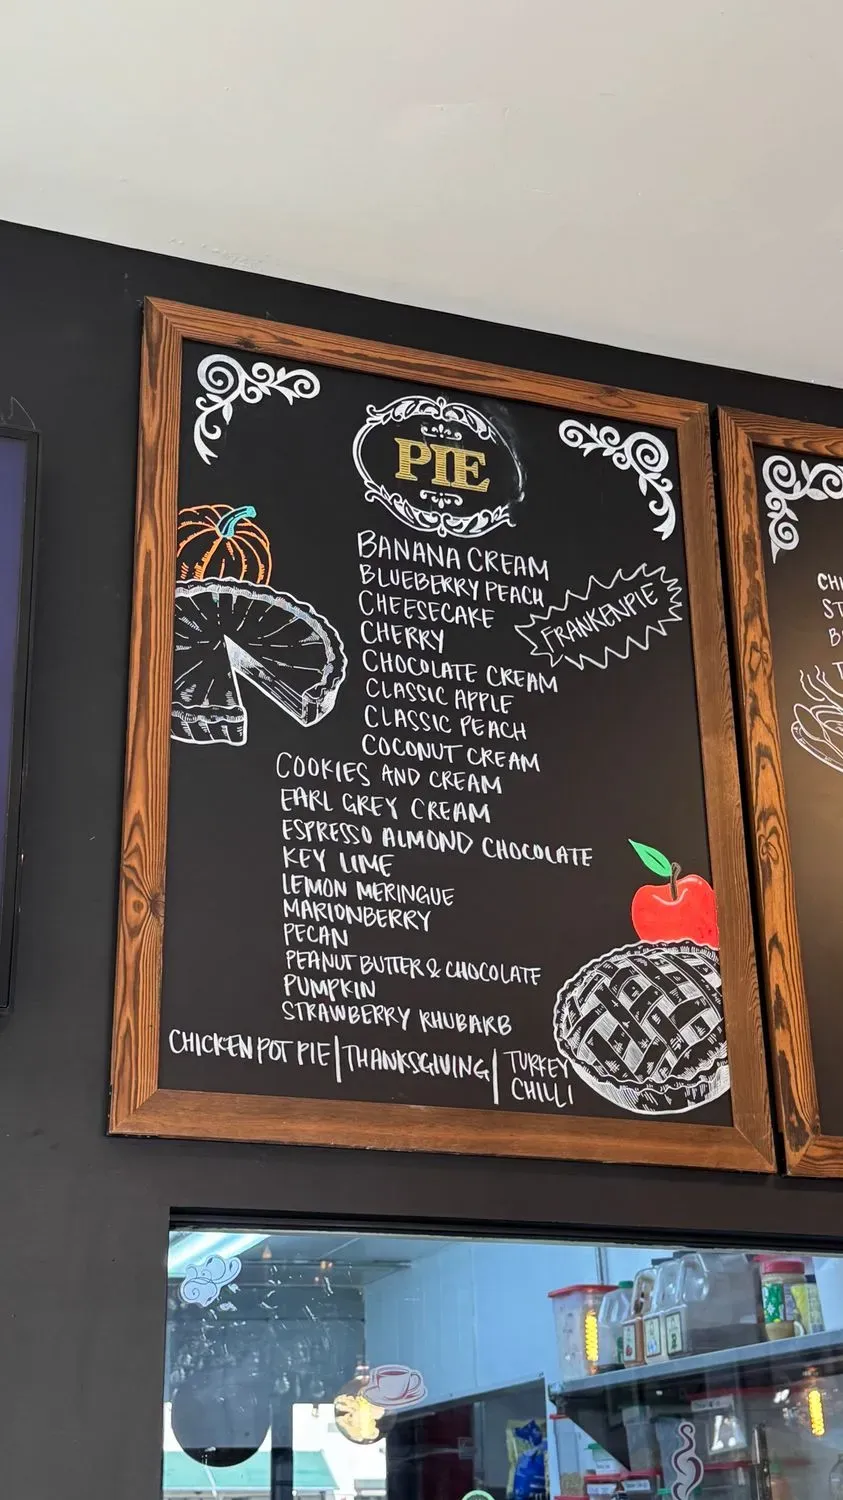 PIE
BANANA CREAM
BLUEBERRY PEACH
CHEESECAKE
FRANKENPIE
CHERRY
CHOCOLATE CREAM
CLASSIC APPLE
CLASSIC PEACH
COCONUT CREAM
COOKIES AND CREAM
EARL GREY CREAM
ESPRESSO ALMOND CHOCOLATE
KEY LIME
LEMON MERINGUE
MARIONBERRY
PECAN
PEANUT BUTTER & CHOCOLATE
PUMPKIN
STRAWBERRY RHUBARB
CHICKEN POT PIE | THANKSGIVING | TURKEY
CHILLI